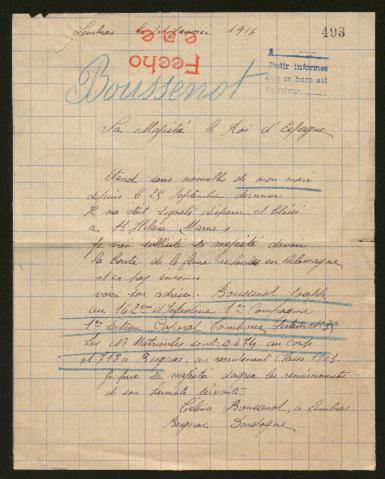 Lembras le janvier 1916
493
Fecho
Pedir informes
Boussenot
Sa Majesté le Roi d'Espagne
Etand sans nouvelles de mon mari
depuis le 25 Septembre dernier
Il ma etait signalé disparu et blessé
a St Hélaire Marne
je vien sollicité sa majesté
la bonté de le faire en Allemagne
et en pay
voici son adresse. Boussenot
au 162em d'Infanterie 1er Compagnie
1er Section Caporal Tambour Secteur N°
Les Nos Matricules sont 0 474 au corps
et 313 a Bergerac, au recrutement Classe 1903
je prie sa majestée dagrée les remerciements
de son humble servante
Célina Boussenot, a Lembras
Bergerac Dordogne